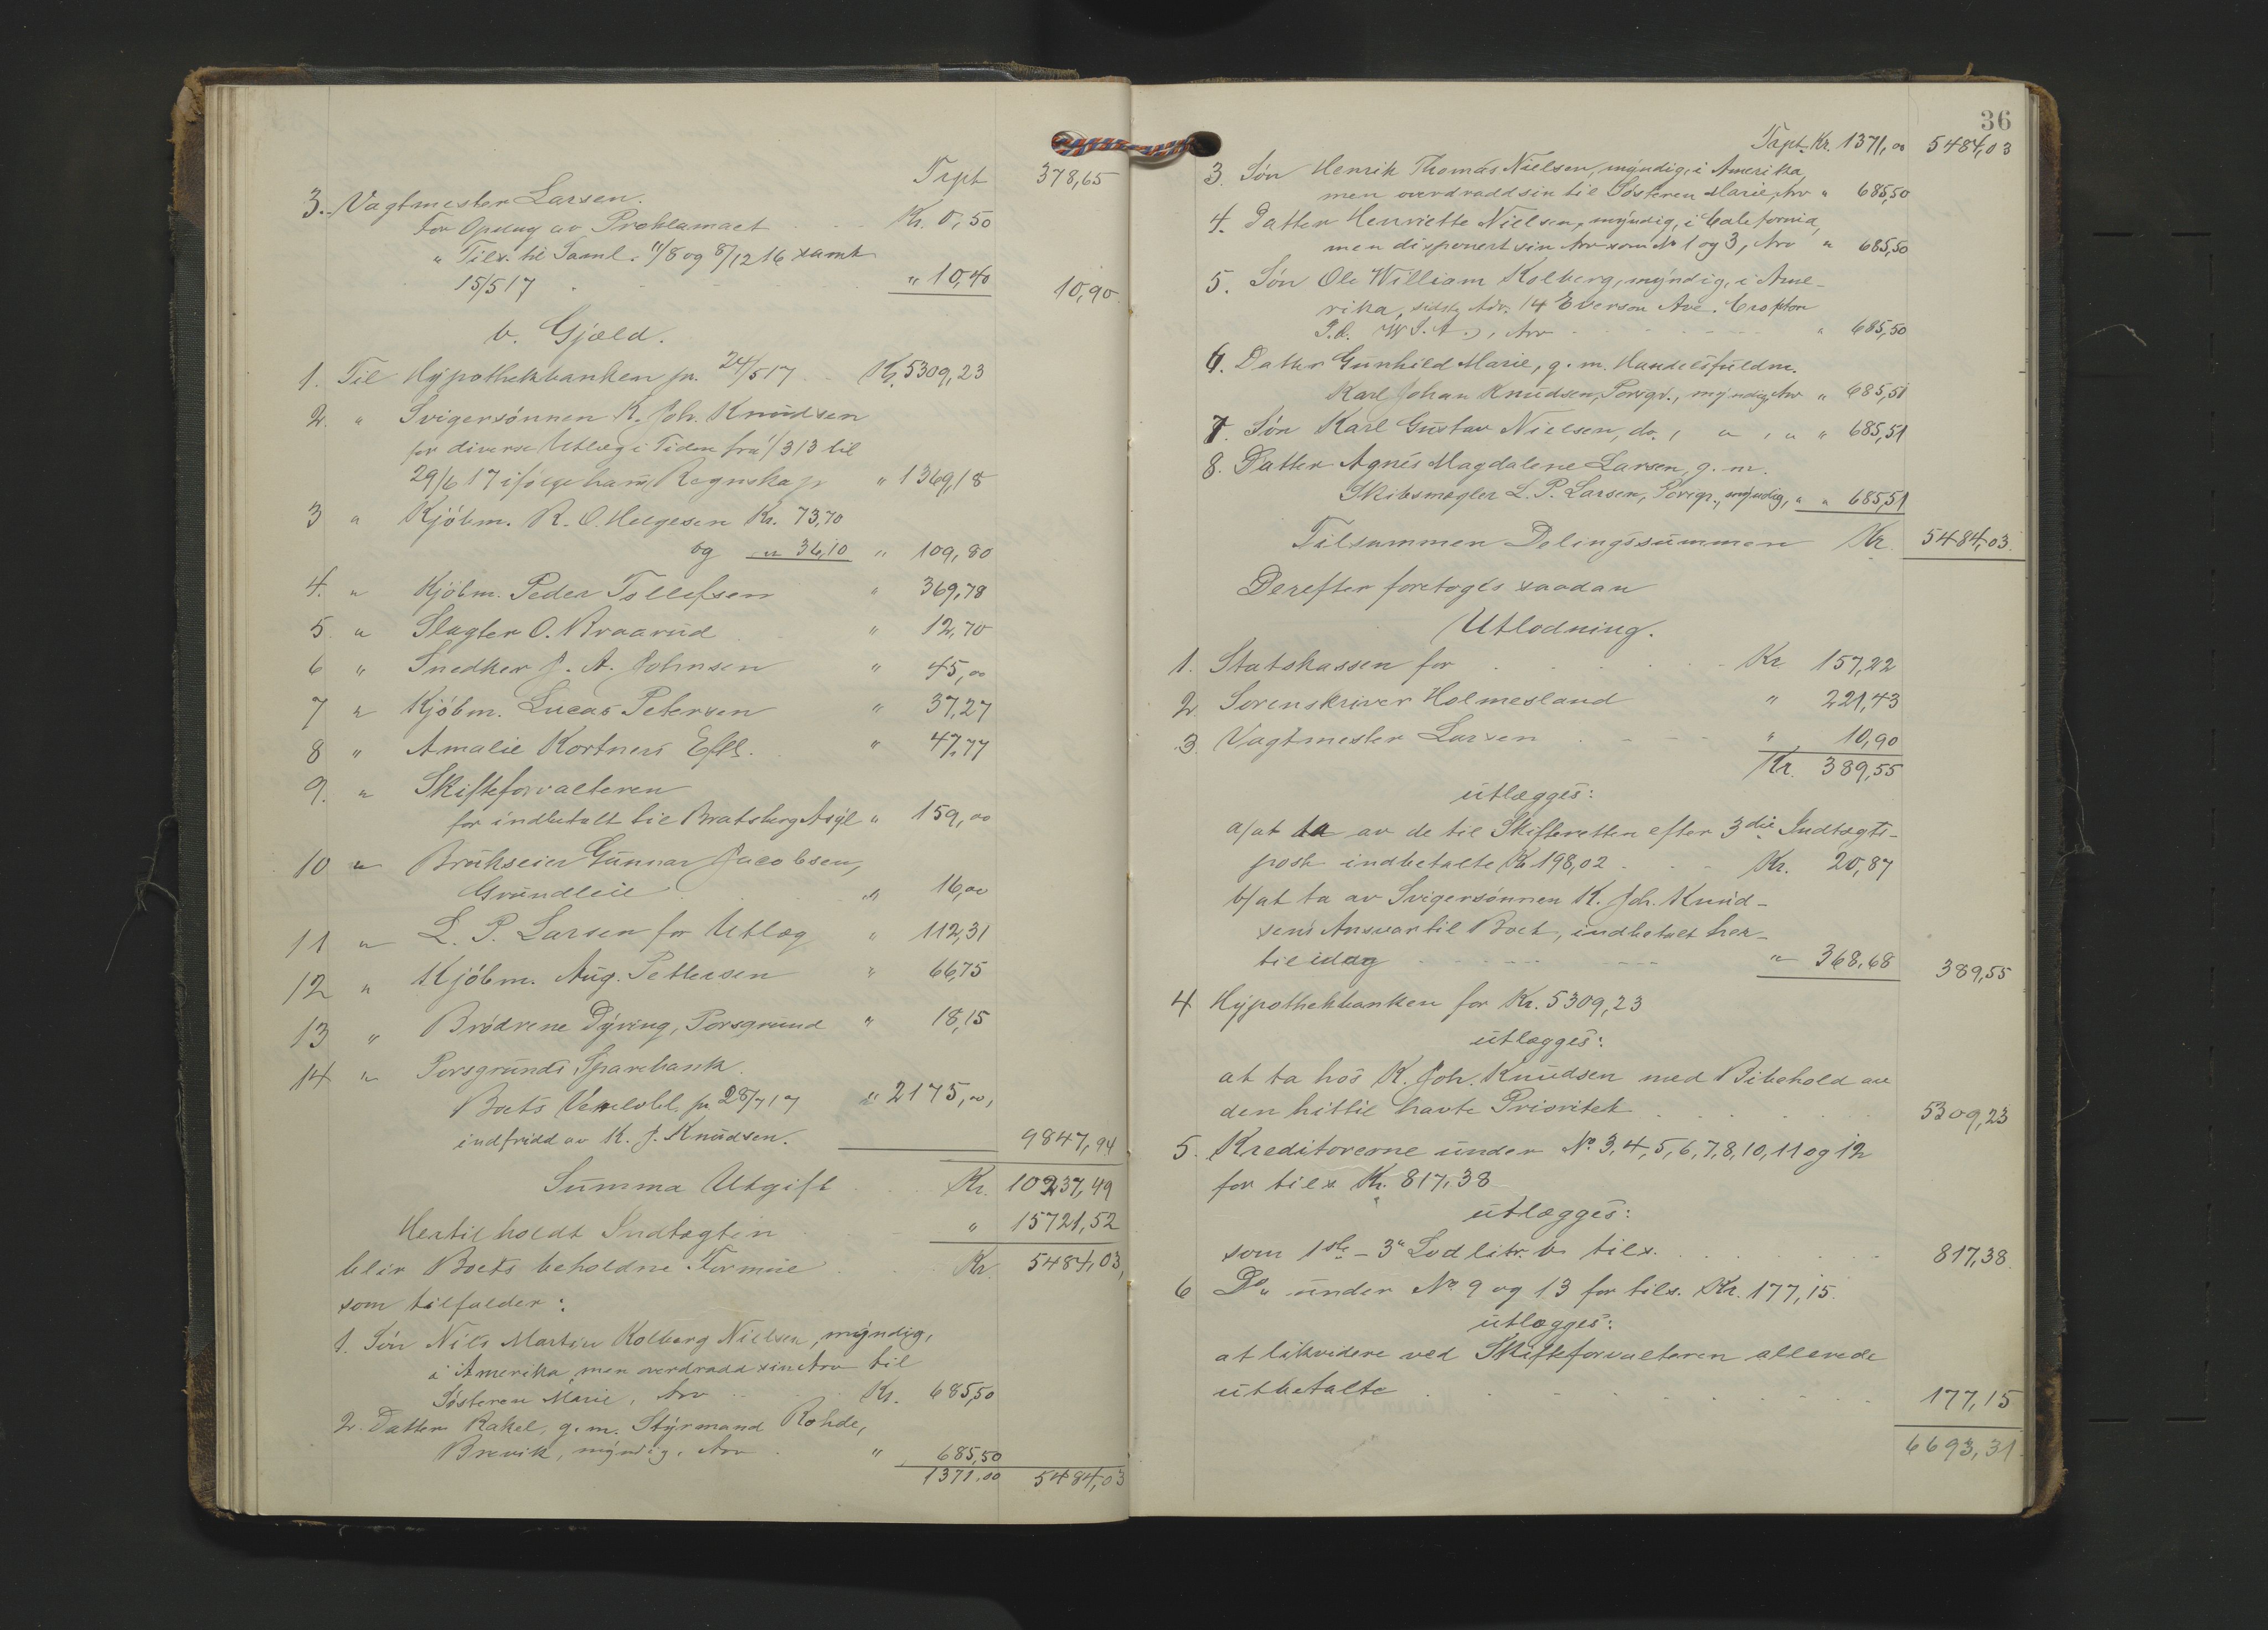 Trpt 378,65
3. Vagtmester Larsen.
For Opslag av Proklamaet Kr. 0,50
" Tils. til Saml. 11/8 og 8/12 16 samt
15/5 17 " 10,40 10,90
b. Gjæld.
1. Til Hypothekbanken pr. 24/5 17 Kr. 5309,23
2. " Svigersönnen K. Joh. Knudsen
for diverse Utlæg i Tiden fra 1/3 13 til
29/6 17 ifølge hans Regnskap " 1369,18
3 " Kjöbm. R. O. Helgesen Kr. 73,70
og " 36,10 " 109,80
4. " Kjöbm. Peder Tollefsen " 369,78
5. " Slagter O. Braarud " 12,70
6 " Snedker J. A. Johnsen " 45,00
7 " Kjöbm. Lucas Petersen " 37,27
8 " Amalie Kortners Eftf. " 47,77
9. " Skifteforvalteren
for indbetalt til Bratsberg Asyl " 159,00
10 " Brukseier Gunnar Jacobsen,
Grundleie " 16,00
11 " L. P. Larsen for Utlæg " 112,31
12 " Kjöbm. Aug. Pettersen " 66,75
13 " Brödrene Dyring, Porsgrund " 18,15
14 " Porsgrunds Sparebank
Boets Vexelobl. pr 28/7 17 " 2175,00,
indfridd av K. J. Knudsen. 9847,94
Summa Utgift Kr. 10237,49
Hertil holdt Indtægten " 15721,52
blir Boets beholdne Formue Kr. 5484,03,
som tilfalder:
1. Sön Nils Martin Kolberg Nielsen, myndig,
i Amerika, men overdradd sin Arv til
Søsteren Marie, Arv Kr. 685,50
2. Datter Rakel, g. m. Styrmand Rohde,
Brevik, myndig, Arv " 685,50
1371.00 5484,03
36
Trpt. Kr. 1371,00 5484,03
3. Sön Henrik Thomas Nielsen, myndig, i Amerika,
men overdradd sin til Søsteren Marie, Arv " 685,50
4. Datter Henriette Nielsen, myndig, i California,
men disponert sin Arv som No 1 og 3, Arv " 685,50
5. Sön Ole William Kolberg, myndig, i Ame-
rika, sidste Adr. 14 Everson Ave. Crofton
P.A. (W S. A.), Arv " 685,50
6. Datter Gunhild Marie, g. m. Handelsfuldm.
Karl Johan Knudsen, Porsgr., myndig, Arv " 685,51
7. Sön Karl Gustav Nielsen, do., " , " " 685,51
8. Datter Agnes Magdalene Larsen, g. m.
Skibsmægler L. P. Larsen, Porsgr., myndig, " " 685,51
Tilsammen Delingssummen Kr. 5484,03.
Derefter foretoges saadan
Utlodning.
1. Statskassen for Kr. 157,22
2. Sorenskriver Holmesland " 221,43
3. Vagtmester Larsen " 10,90
Kr. 389,55
utlægges:
a/ at ta av de til Skifteretten efter 3die Indtægts-
post indbetalte Kr. 198,02 Kr. 20,87
b/ at ta av Svigersönnen K. Joh. Knud-
sens Ansvar til Boet, indbetalt her-
til idag " 368,68 389,55
4 Hypothekbanken for Kr. 5309,23
utlægges:
at ta hos K. Joh. Knudsen med Bibehold av
den hittil havte Prioritet 5309,23
5. Kreditorerne under No. 3, 4, 5, 6, 7, 8, 10, 11 og 12
for tils. Kr. 817,38
utlægges:
som 1ste - 3" Lod litr. b tils. 817,38.
6 Do. under No 9 og 13 for tils. Kr. 177,15.
utlægges:
at likvidere ved Skifteforvalteren allerede
utbetalte 177,15
6693,31